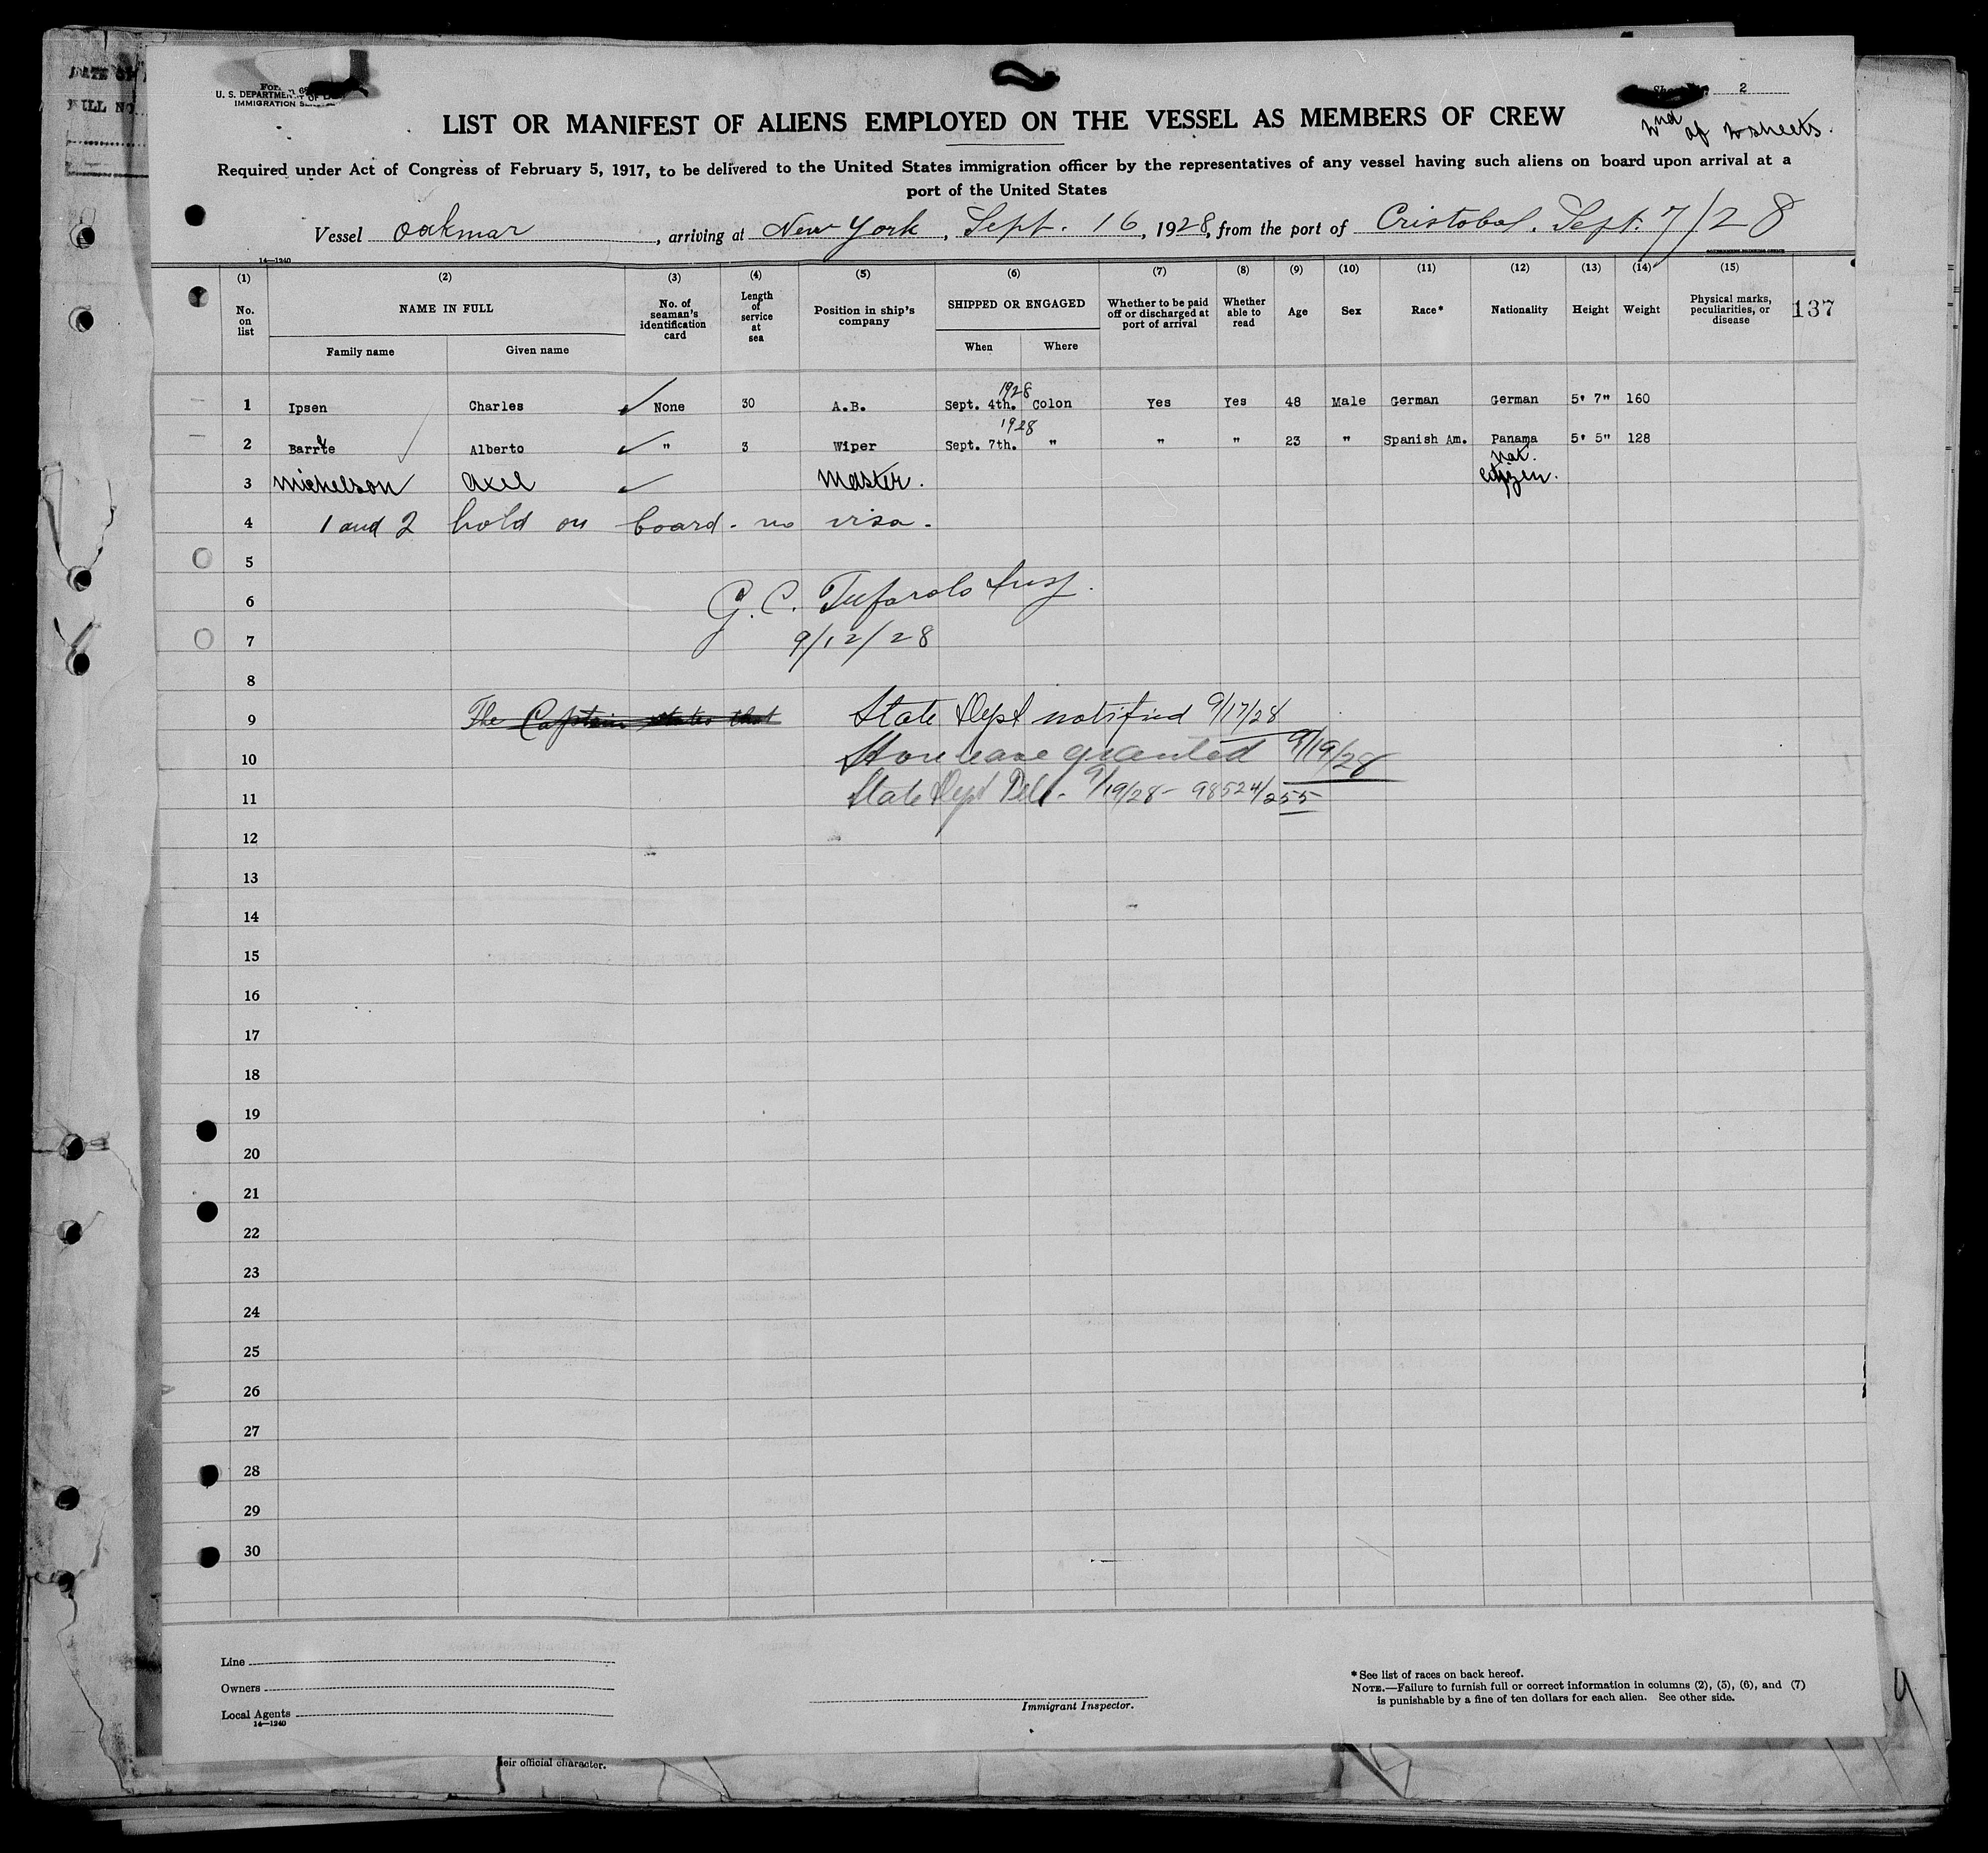 DATE OF
BILL NO.
U. S. DEPARTMENT OF
IMMIGRATION
2
2nd of 2 sheets.
LIST OR MANIFEST OF ALIENS EMPLOYED ON THE VESSEL AS MEMBERS OF CREW
Required under Act of Congress of February 5, 1917, to be delivered to the United States immigration officer by the representatives of any vessel having such aliens on board upon arrival at a
port of the United States
Vessel Oakmar, arriving at New York, Sept. 16, 1928, from the port of Cristobal. Sept. 7/28
14—1240 GOVERNMENT PRINTING OFFICE
(1) (2) (3) (4) (5) (6) (7) (8) (9) (10) (11) (12) (13) (14) (15)
No. on list NAME IN FULL Family name Given name No. of seaman's identification card Length of service at sea Position in ship's company SHIPPED OR ENGAGED When Where Whether to be paid off or discharged at port of arrival Whether able to read Age Sex Race* Nationality Height Weight Physical marks, peculiarities, or disease 137
1928
1 Ipsen Charles None 30 A.B. Sept. 4th. Colon Yes Yes 48 Male German German 5' 7" 160
1928
2 Barrte Alberto " 3 Wiper Sept. 7th. " " " 23 " Spanish Am. Panama 5' 5" 128
nat.
3 Michelson Axel Master. citizen.
4 1 and 2 hold on board - no visa -
5
6 G. C. Tufarolo Insp.
7 9/12/28
8
9 The Captain states that State Dept notified 9/17/28
10 Shore leave granted 9/19/28
11 State Dept Tel. - 9/19/28 - 98524/255
12
13
14
15
16
17
18
19
20
21
22
23
24
25
26
27
28
29
30
Line
Owners
Local Agents
14—1240
Immigrant Inspector.
* See list of races on back hereof.
NOTE.—Failure to furnish full or correct information in columns (2), (5), (6), and (7)
is punishable by a fine of ten dollars for each alien. See other side.
9
eir official character.